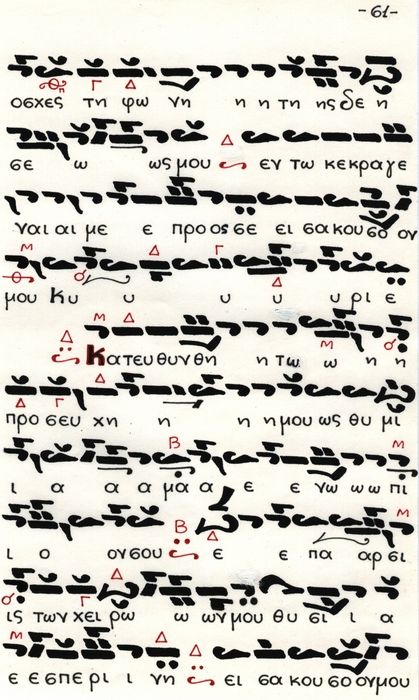 -61-
σχες τη φω νη η η τη ης δε η
σε ω ως μου εν τω κεκραγε
ναι αι με ε προ οσ σε ει σα κου σο ον
μου Κυ υ υ υ υ ρι ε
Κατευθυνθη η τω ω η η
προ σευ χη η η η μου ως θυ μι
ι α α α μα α ε ε νω ω ω πι
ι ο ον σου ε ε πα αρ σι
ις των χει ρω ω ων μου θυ σι ι α
ε ε σπε ρι ι νη ει σα κου σο ον μου